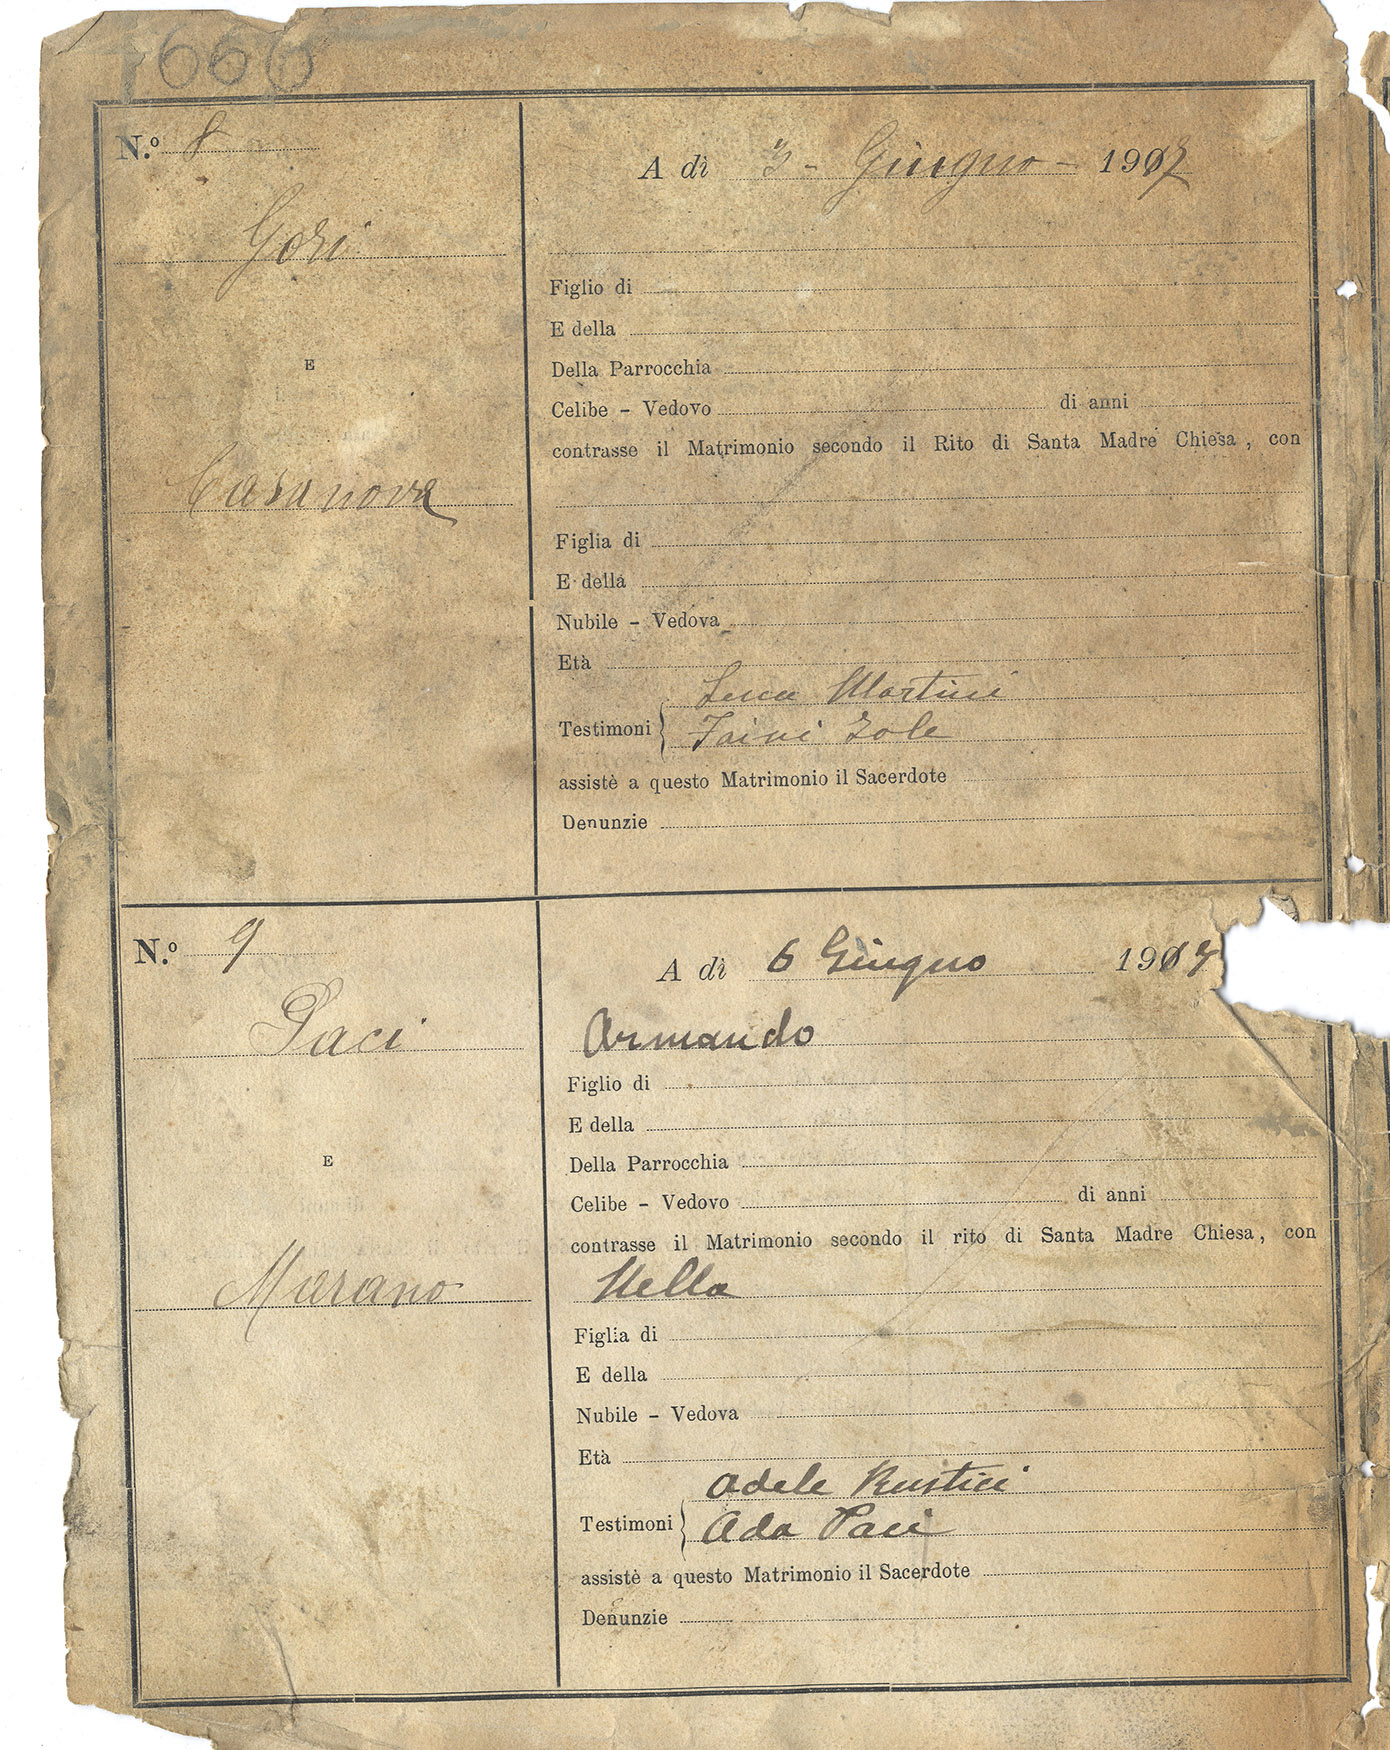 1666
N.º 8
A dì 3 - Giugno - 1907
Gori
Figlio di
E della
E
Della Parrocchia
Celibe - Vedovo di anni
contrasse il Matrimonio secondo il Rito di Santa Madre Chiesa, con
Casanova
Figlia di
E della
Nubile - Vedova
Età
Testimoni
Luca Martini
Faini Iole
assistè a questo Matrimonio il Sacerdote
Denunzie
N.º 9
A dì 6 Giugno 1907
Paci
Armando
Figlio di
E della
E
Della Parrocchia
Celibe - Vedovo di anni
contrasse il Matrimonio secondo il rito di Santa Madre Chiesa, con
Murano
Nella
Figlia di
E della
Nubile - Vedova
Età
Testimoni
Adele Rustici
Ada Paci
assistè a questo Matrimonio il Sacerdote
Denunzie